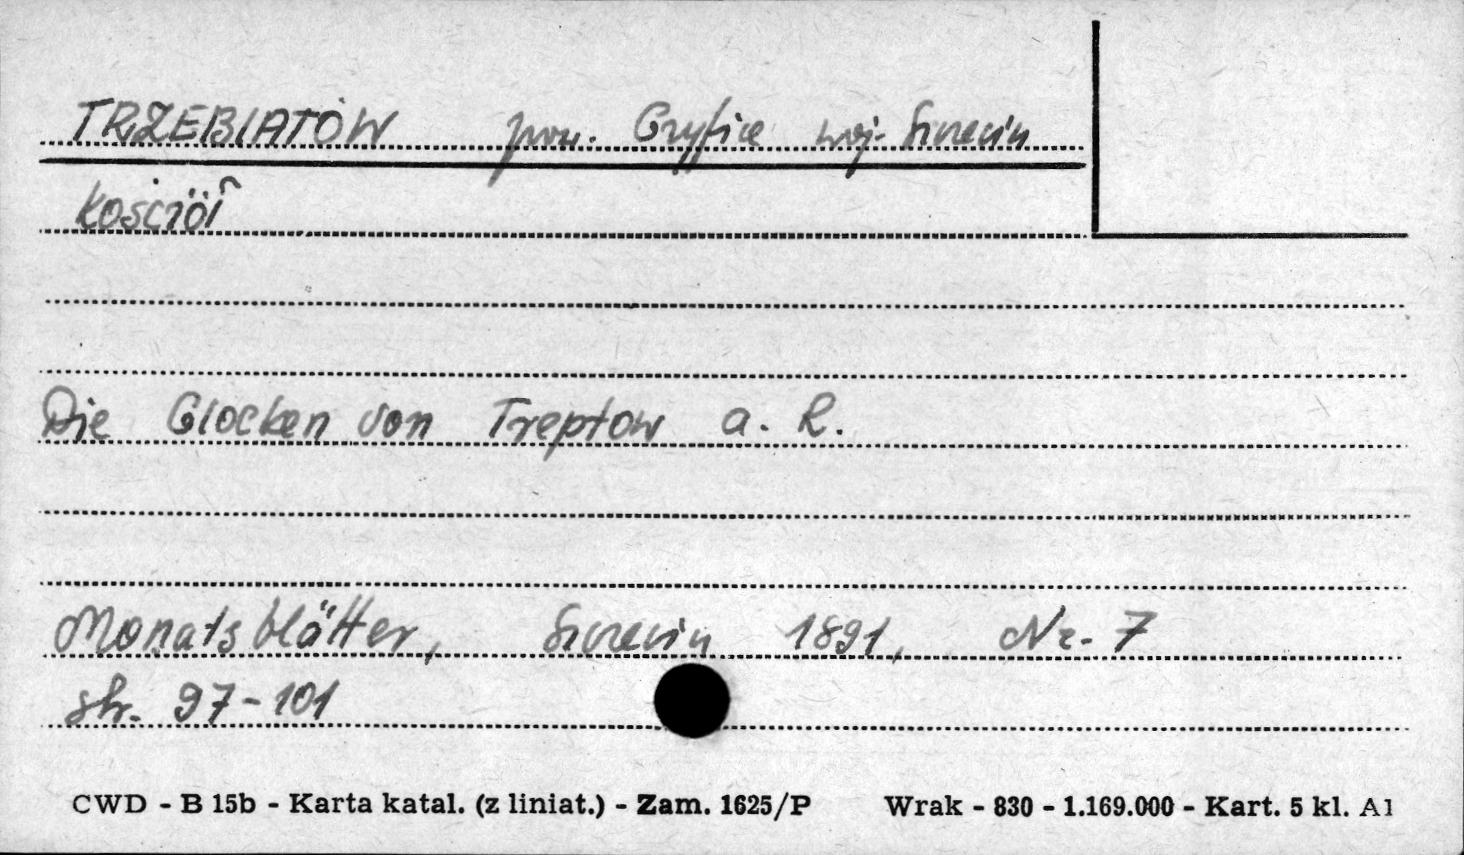 TRZEBIATÓW pow. Gryfice woj. Szczecin
Kościół
Die Glocken von Treptow a. R.
Monatsblätter, Szczecin 1891, Nr. 7
str. 97-101
CWD - B 15b - Karta katal. (z liniat.) - Zam. 1625/P Wrak - 830 - 1.169.000 - Kart. 5 kl. A1